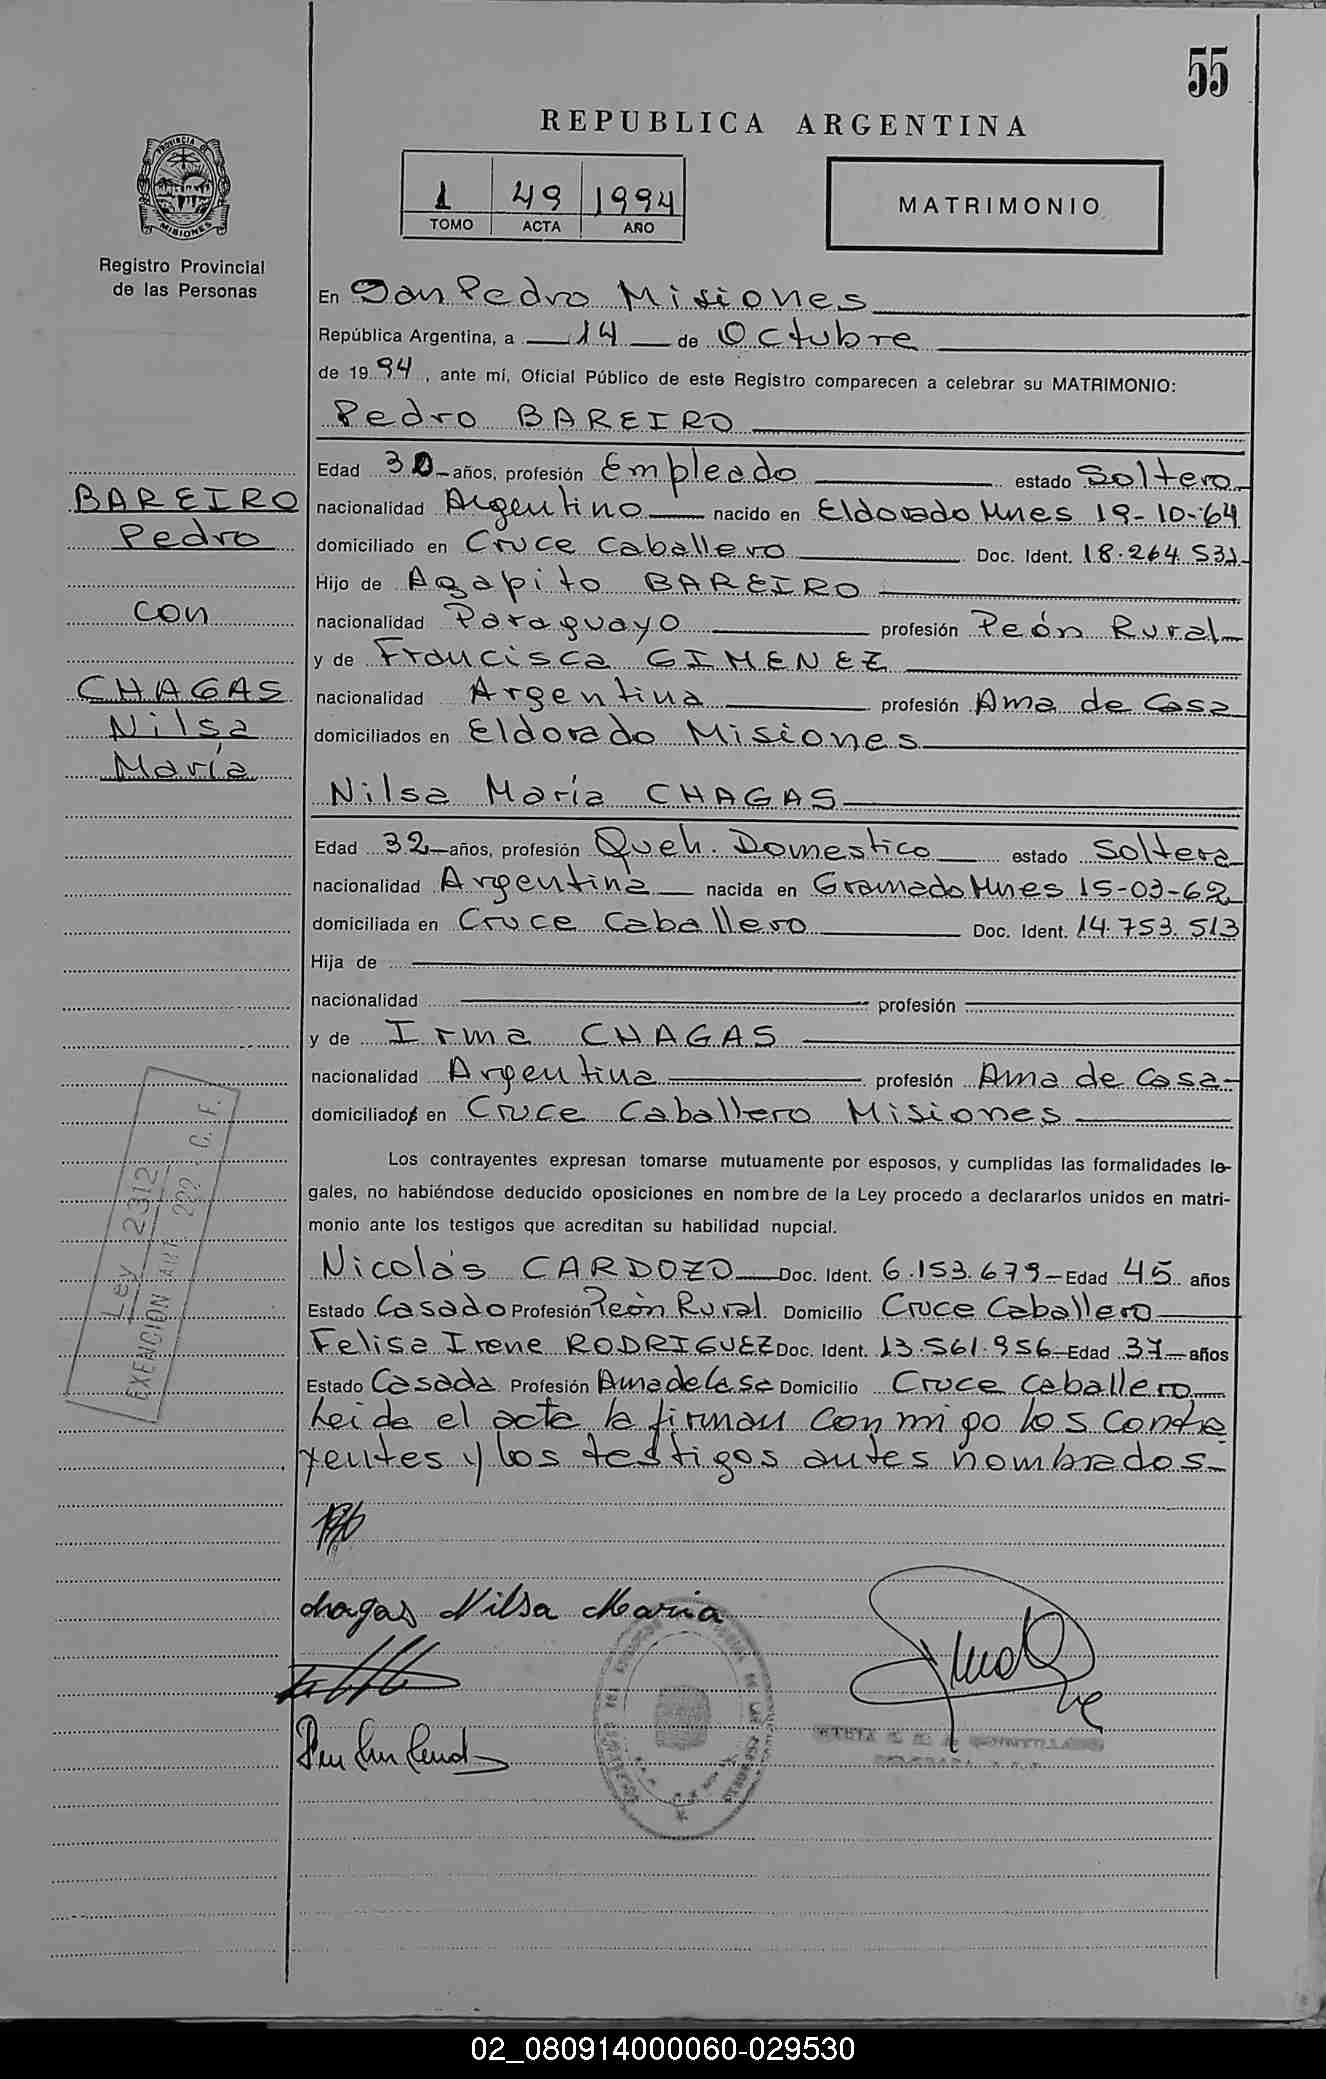 55
REPUBLICA ARGENTINA
1 49 1994
TOMO ACTA AÑO
MATRIMONIO
PROVINCIA D
MISIONES
Registro Provincial
de las Personas
En San Pedro Misiones
República Argentina, a 14 de Octubre
de 19 94, ante mí, Oficial Público de este Registro comparecen a celebrar su MATRIMONIO:
Pedro BAREIRO
Edad 30 años, profesión Empleado estado Soltero
nacionalidad Argentino nacido en Eldorado Mnes 19-10-64
domiciliado en Cruce Caballero Doc. Ident. 18.264.531
Hijo de Agapito BAREIRO
nacionalidad Paraguayo profesión Peón Rural
y de Francisca GIMENEZ
nacionalidad Argentina profesión Ama de Casa
domiciliados en Eldorado Misiones
BAREIRO
Pedro
con
CHAGAS
Nilsa
María
Nilsa María CHAGAS
Edad 32 años, profesión Queh. Domestico estado Soltera
nacionalidad Argentina nacida en Gramado Mnes 15-03-62
domiciliada en Cruce Caballero Doc. Ident. 14.753.513
Hija de
nacionalidad profesión
y de Irma CHAGAS
nacionalidad Argentina profesión Ama de Casa
domiciliados en Cruce Caballero Misiones
Los contrayentes expresan tomarse mutuamente por esposos, y cumplidas las formalidades le-
gales, no habiéndose deducido oposiciones en nombre de la Ley procedo a declararlos unidos en matri-
monio ante los testigos que acreditan su habilidad nupcial.
Nicolás CARDOZO Doc. Ident. 6.153.679 Edad 45 años
Estado Casado Profesión Peón Rural Domicilio Cruce Caballero
Felisa Irene RODRIGUEZ Doc. Ident. 13.561.956 Edad 37 años
Estado Casada Profesión Ama de Casa Domicilio Cruce Caballero
Leida el acta la firman conmigo los contra
yentes y los testigos antes nombrados.
Ley 2312
EXENCION ART 222 C. F.
chagas Nilsa Maria
02_080914000060-029530